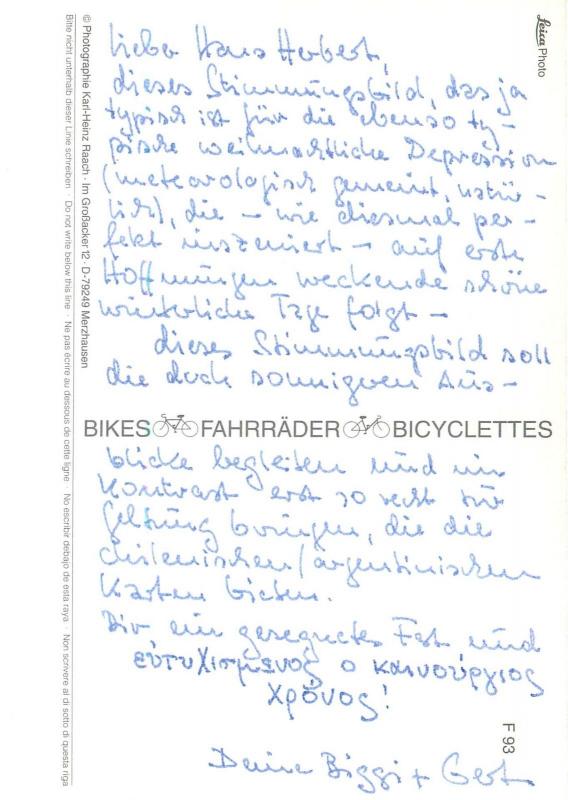 Lieber Hans Herbert,
dieses Stimmungsbild, das ja
typisch ist für die ebenso ty-
pische weihnachtliche Depression
(meteorologisch gemeint, natür-
lich), die – wie diesmal per-
fekt inszeniert – auf erste
Hoffnungen weckende schöne
winterliche Tage folgt –
dieses Stimmungsbild soll
die doch sonnigeren Aus-
BIKES FAHRRÄDER BICYCLETTES
blicke begleiten und im
Kontrast erst so recht zur
Geltung bringen, die die
chilenischen/argentinischen
Karten bieten.
Dir ein gesegnetes Fest und
εὐτυχισμένος ο καινούργιος
χρόνος!
Deine Biggi + Gert
Leica Photo
F 93
© Photographie Karl-Heinz Raach · Im Großacker 12 · D-79249 Merzhausen
Bitte nicht unterhalb dieser Linie schreiben · Do not write below this line · Ne pas écrire au dessous de cette ligne · No escribir debajo de esta raya · Non scrivere al di sotto di questa riga